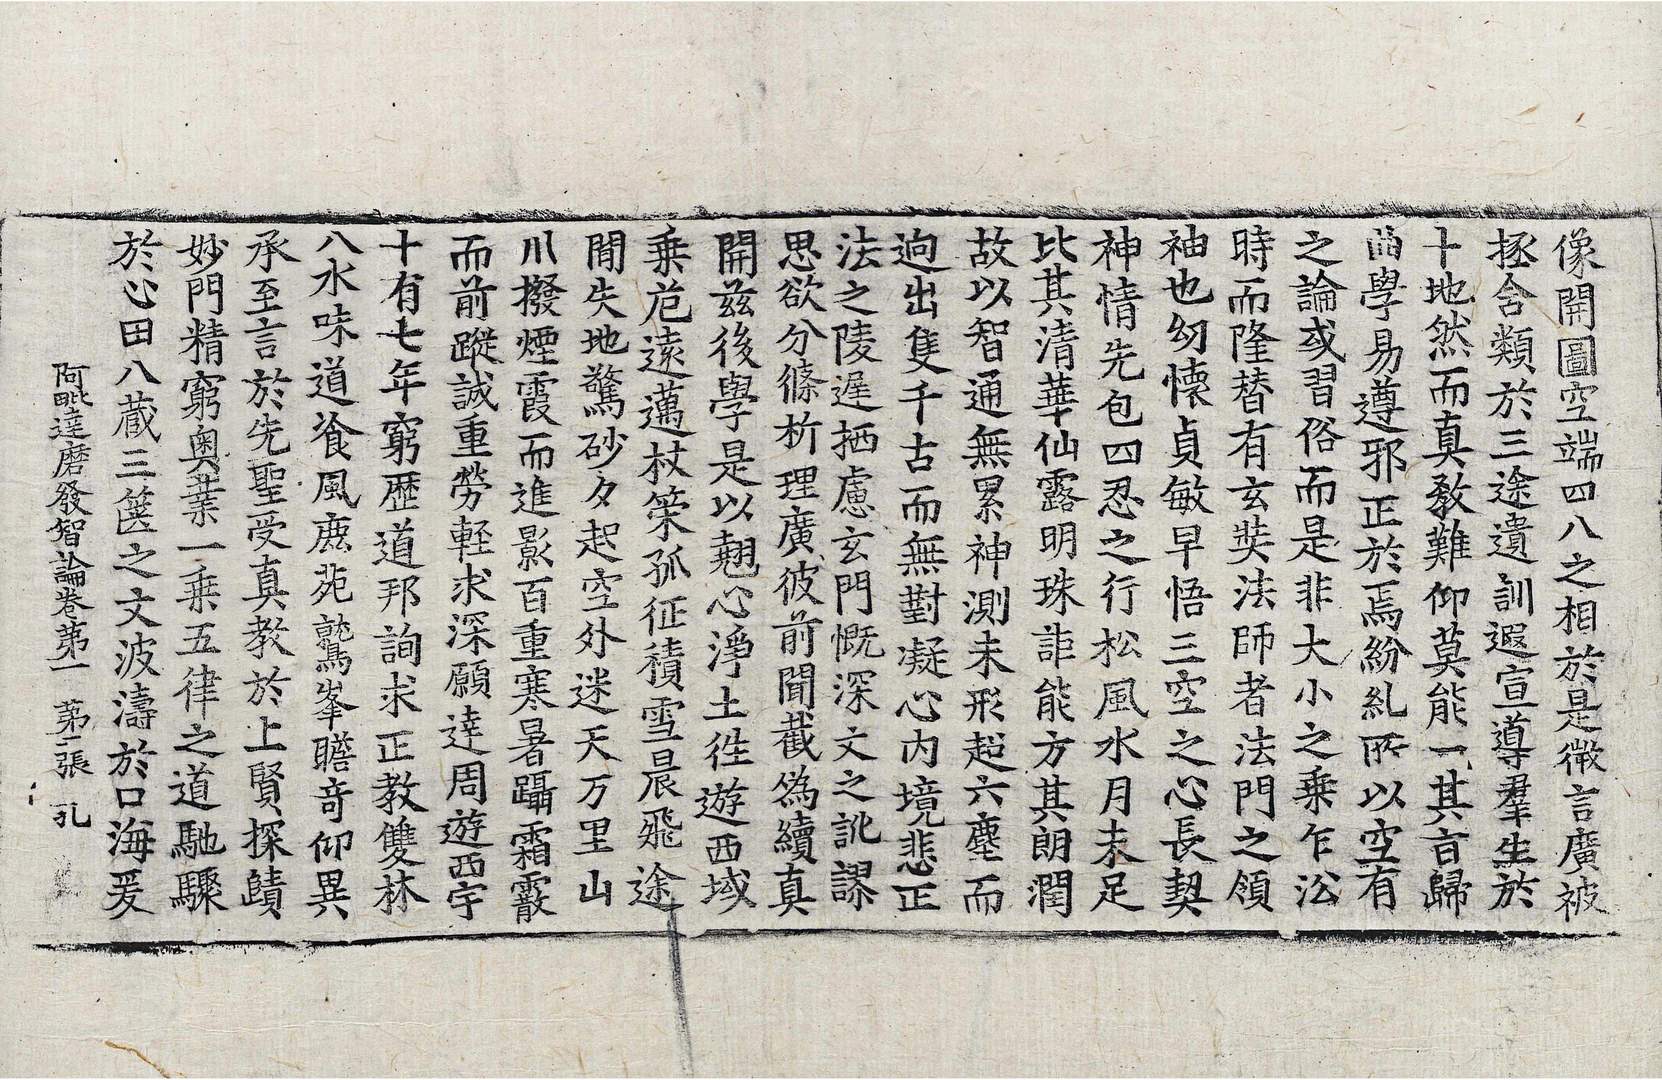 像開圖空端四八之相於是微言廣被
拯含類於三途遺訓遐宣導羣生於
十地然而真教難仰莫能一其旨歸
曲學易遵邪正於焉紛糺所以空有
之論或習俗而是非大小之乗乍㳂
時而隆替有玄奘法師者法門之領
袖也幼懷貞敏早悟三空之心長契
神情先包四忍之行松風水月未足
比其清華仙露明珠詎能方其朗潤
故以智通無累神測未形超六塵而
逈出隻千古而無對凝心內境悲正
法之陵遲栖慮玄門慨深文之訛謬
思欲分條析理廣彼前聞截偽續真
開茲後學是以翹心淨土徃遊西域
乗危遠邁杖策孤征積雪晨飛途
間失地驚砂夕起空外迷天万里山
川撥煙霞而進影百重寒暑躡霜霰
而前蹤誠重勞輕求深願達周遊西宇
十有七年窮歷道邦詢求正教雙林
八水味道飡風鹿苑鷲峯瞻奇仰異
承至言於先聖受真教於上賢探賾
妙門精窮奧業一乗五律之道馳驟
於心田八藏三篋之文波濤於口海爰
阿毗達磨發智論卷第一 第二張 孔